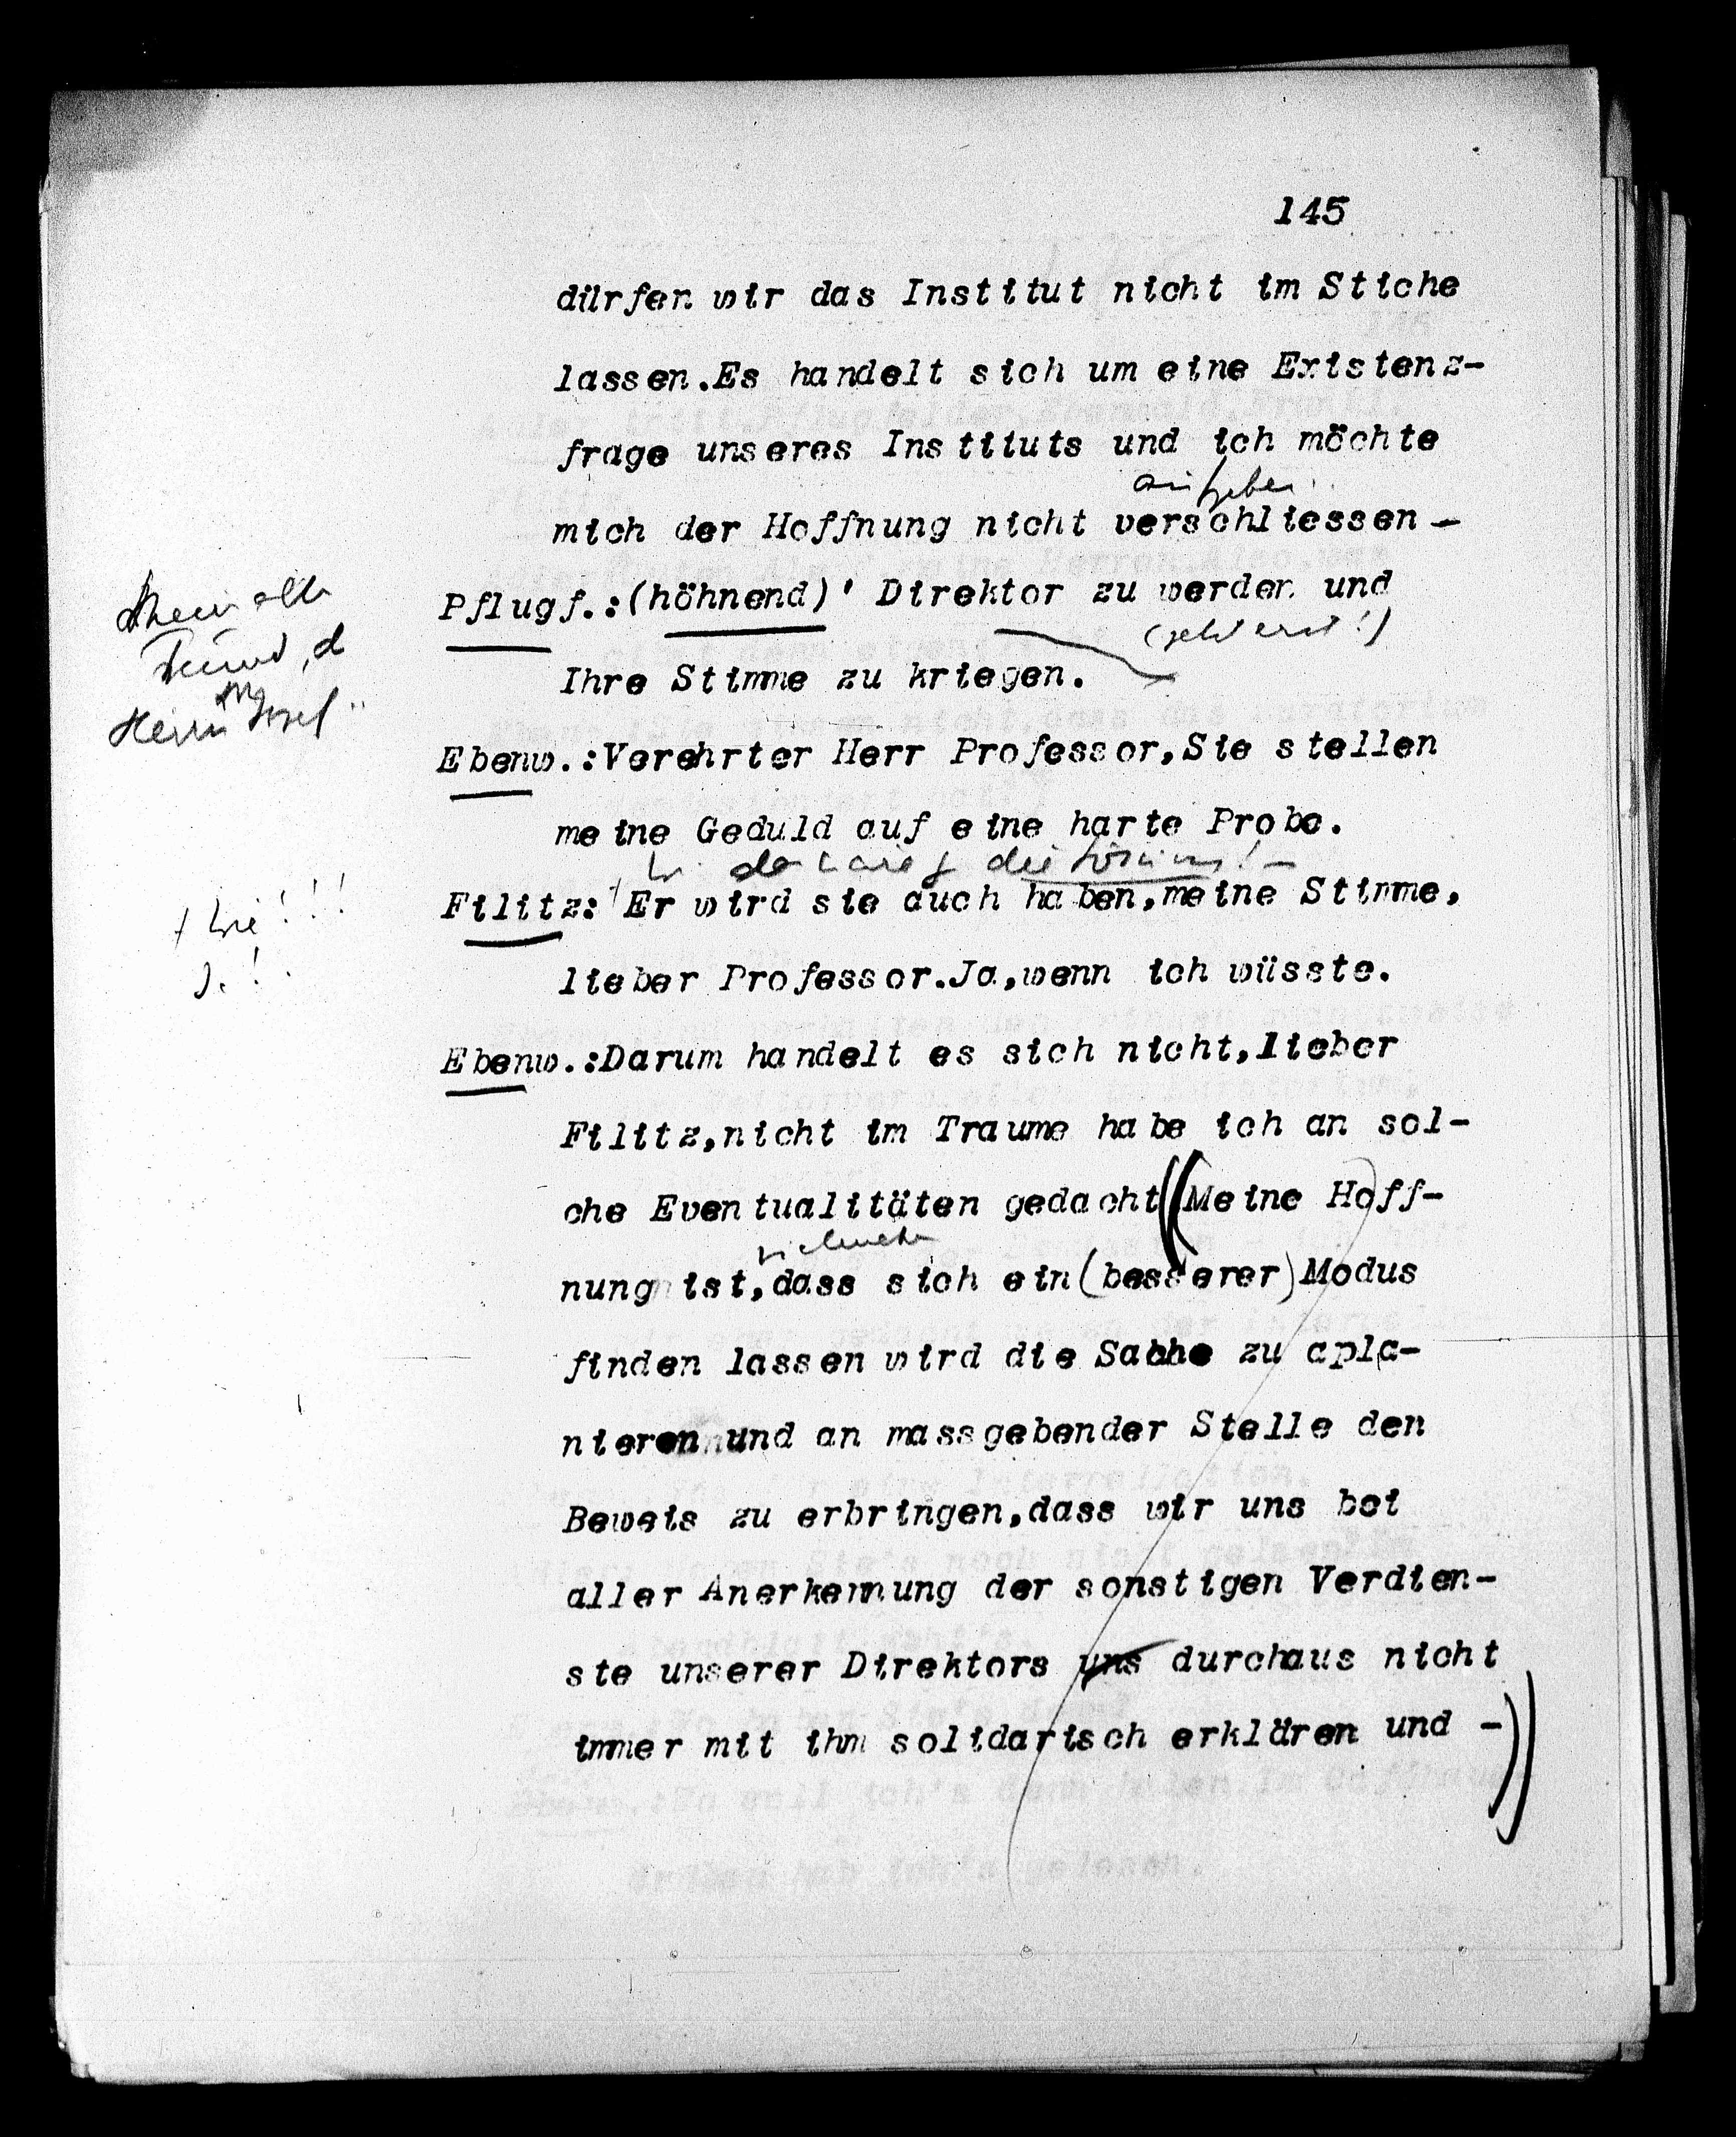 145
dürfen wir das Institut nicht im Stiche
lassen.Es handelt sich um eine Existenz-
frage unseres Instituts und ich möchte
aufgeben
mich der Hoffnung nicht verschliessen -
Pflugf.:(höhnend)' Direktor zu werden und
Ihre Stimme zu kriegen.
Ebenw.:Verehrter Herr Professor,Sie stellen
meine Geduld auf eine harte Probe.
Filitz: Er wird sie auch haben,meine Stimme,
lieber Professor.Ja,wenn ich wüsste.
Ebenw.:Darum handelt es sich nicht,lieber
Filitz,nicht im Traume habe ich an sol-
che Eventualitäten gedacht((Meine Hoff-
vielmehr
nung ist,dass sich ein(besserer)Modus
finden lassen wird die Sache zu apla-
nieren und an massgebender Stelle den
Beweis zu erbringen,dass wir uns bei
aller Anerkennung der sonstigen Verdien-
ste unserer Direktors uns durchaus nicht
immer mit ihm solidarisch erklären und -))